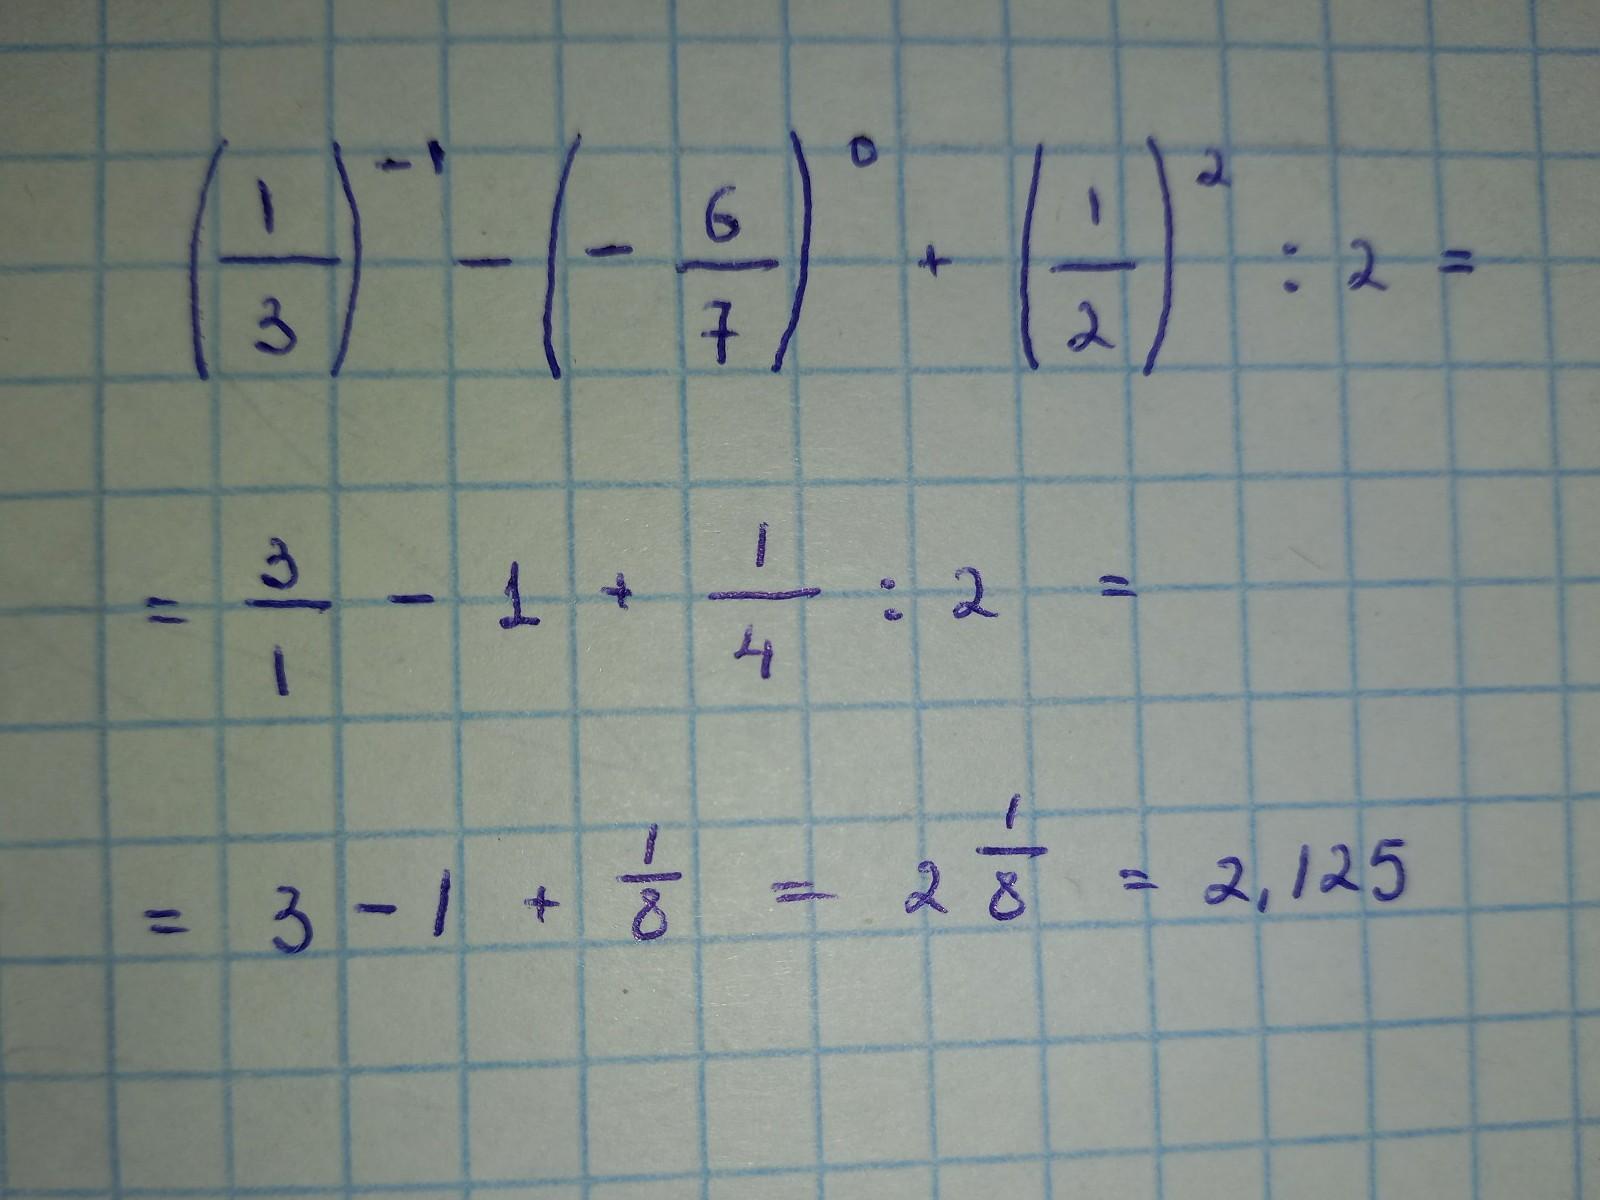 (1/3)⁻¹ − (− 6/7)⁰ + (1/2)² : 2 =
= 3/1 − 1 + 1/4 : 2 =
= 3 − 1 + 1/8 = 2 1/8 = 2,125